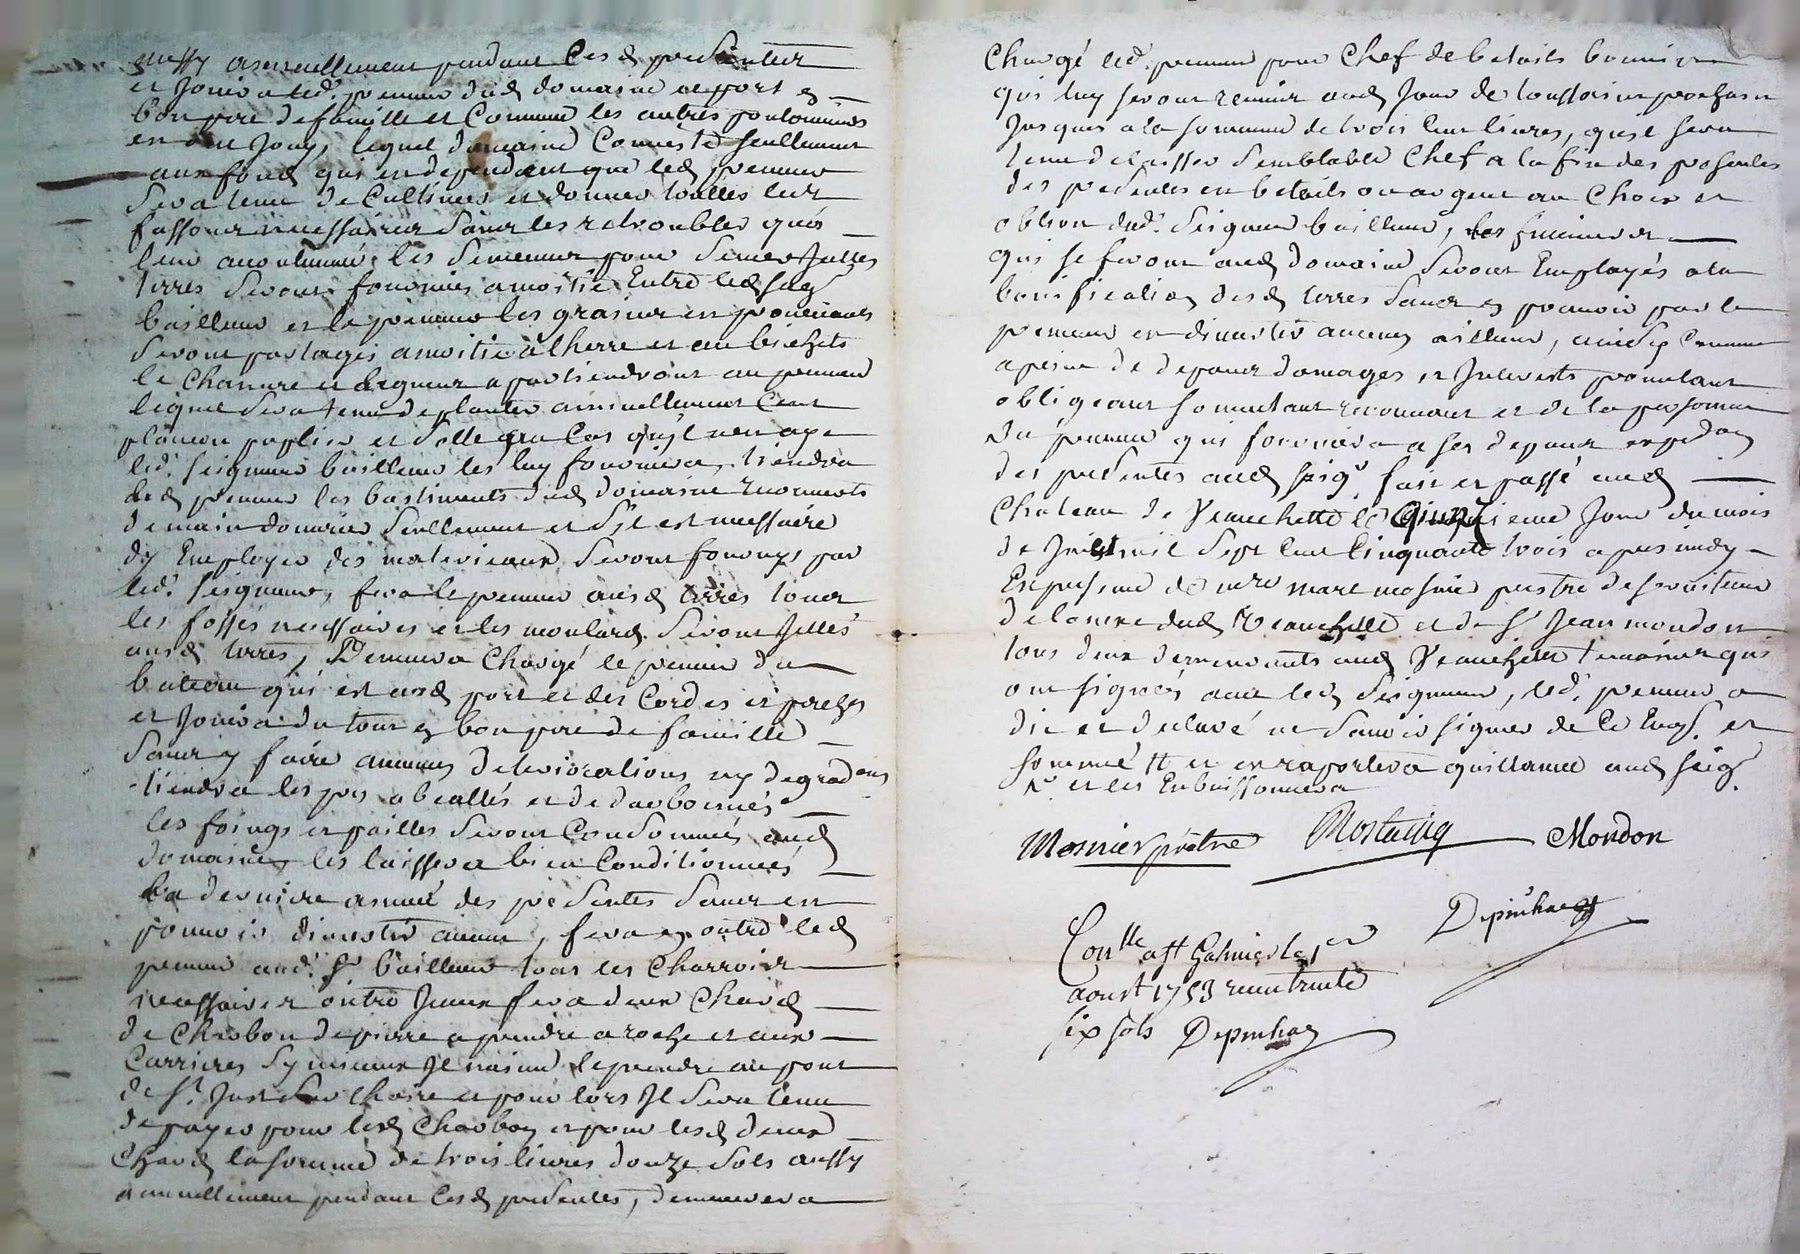 aussy annuellement pendant lesd presentes
et Jouira led. preneur dud domaine et port en
bon pere de famille et Comme les autres
en ont Jouy, lequel domaine Conciste seullement
aux fond qui en dependent que led preneur
sera tenu de Cultiver et donner touttes les
fassons necessaires sans les retroubler que
leur accoutumé les semences pour semer Jcelles
terres seront fournies a moitié Entre led seigr
bailleur et le preneur les grains en provenants
seront partagés a moitié a lherre et au bichets
le Chanvre et legumes apartiendront au preneur
lequel sera tenu de planter annuellement Cent
plancon peplier et au Cas quil nen aye
led. seigneur bailleur les luy fournira, tiendra
led preneur les bastiments dud domaine recouverts
de main douvrier seullement et sil est necessaire
dy Employer des materieaux seront fournys par
led. seigneur, fera le preneur ausd terres tous
les fossés necessaires et les moulard seront Jettés
ausd terres, Demeura Chargé le preneur du
bateau qui est aud port et des Cordes et
et Jouira du tout en bon pere de famille
sans y faire aucunes deteriorations ny degradons
tiendra les prés abeallés et dedarbonnés
les foings et pailles seront Consommés aud
domaine, les laissera bien Conditionnés
La derniere année des presentes sans en
pouvoir divertir aucun, fera en outre led
preneur aud. sr bailleur tous les Charrois
necessaires outre Jceux fera deux Chard
de Charbon de pierre a prendre a roche et aux
Carrieres sy mieux Jl naime le prendre au port
de st Just sur Loire et pour lors Jl sera tenu
de payer pour led Charbon et pour lesd deux
Chard la somme de trois livres douze sols aussy
annuellement pendant lesd presentes, demeurera
Chargé led. preneur pour Chef de betails
qui luy seront remis aud Jour de toussaint prochain
Jusques a la somme de trois Cent livres, quil sera
tenu delaisser semblable Chef a la fin des presentes
des presentes en betails ou argent au Choix et
obtion dud. seigneur bailleur, les fumiers
qui se feront aud domaine seront Employés a la
bonification desd terres sans en pouvoir par le
preneur en divertir aucuns ailleurs, ainsy Convenu
a peine de depens domages et Jnterests promettant
obligeant soumettant renonceant et de la personne
du preneur qui fournira a ses depens expedon
des presentes aud seigr fait et passé aud
Chateau de Veauchette le Quinzieme Jour du mois
de Juillet mil sept Cent Cinquante trois apres midy
En presence de mre marc mosnier prestre desserviteur
de la cure dud Veauchette et de sr Jean mondon
tous deux demeurants aud Veauchette temoins qui
ont signés avec led seigneur, led. preneur a
dit et declaré ne savoir signer de Ce Enqs. et
sommé # et en raportera quittance aud seigr
# et les Enbuissonnera
Mosnier prêtre
Mondon
Depinhac
Conlle aff Galmier le 1er
aoust 1753 recu trente
six sols Depinhac